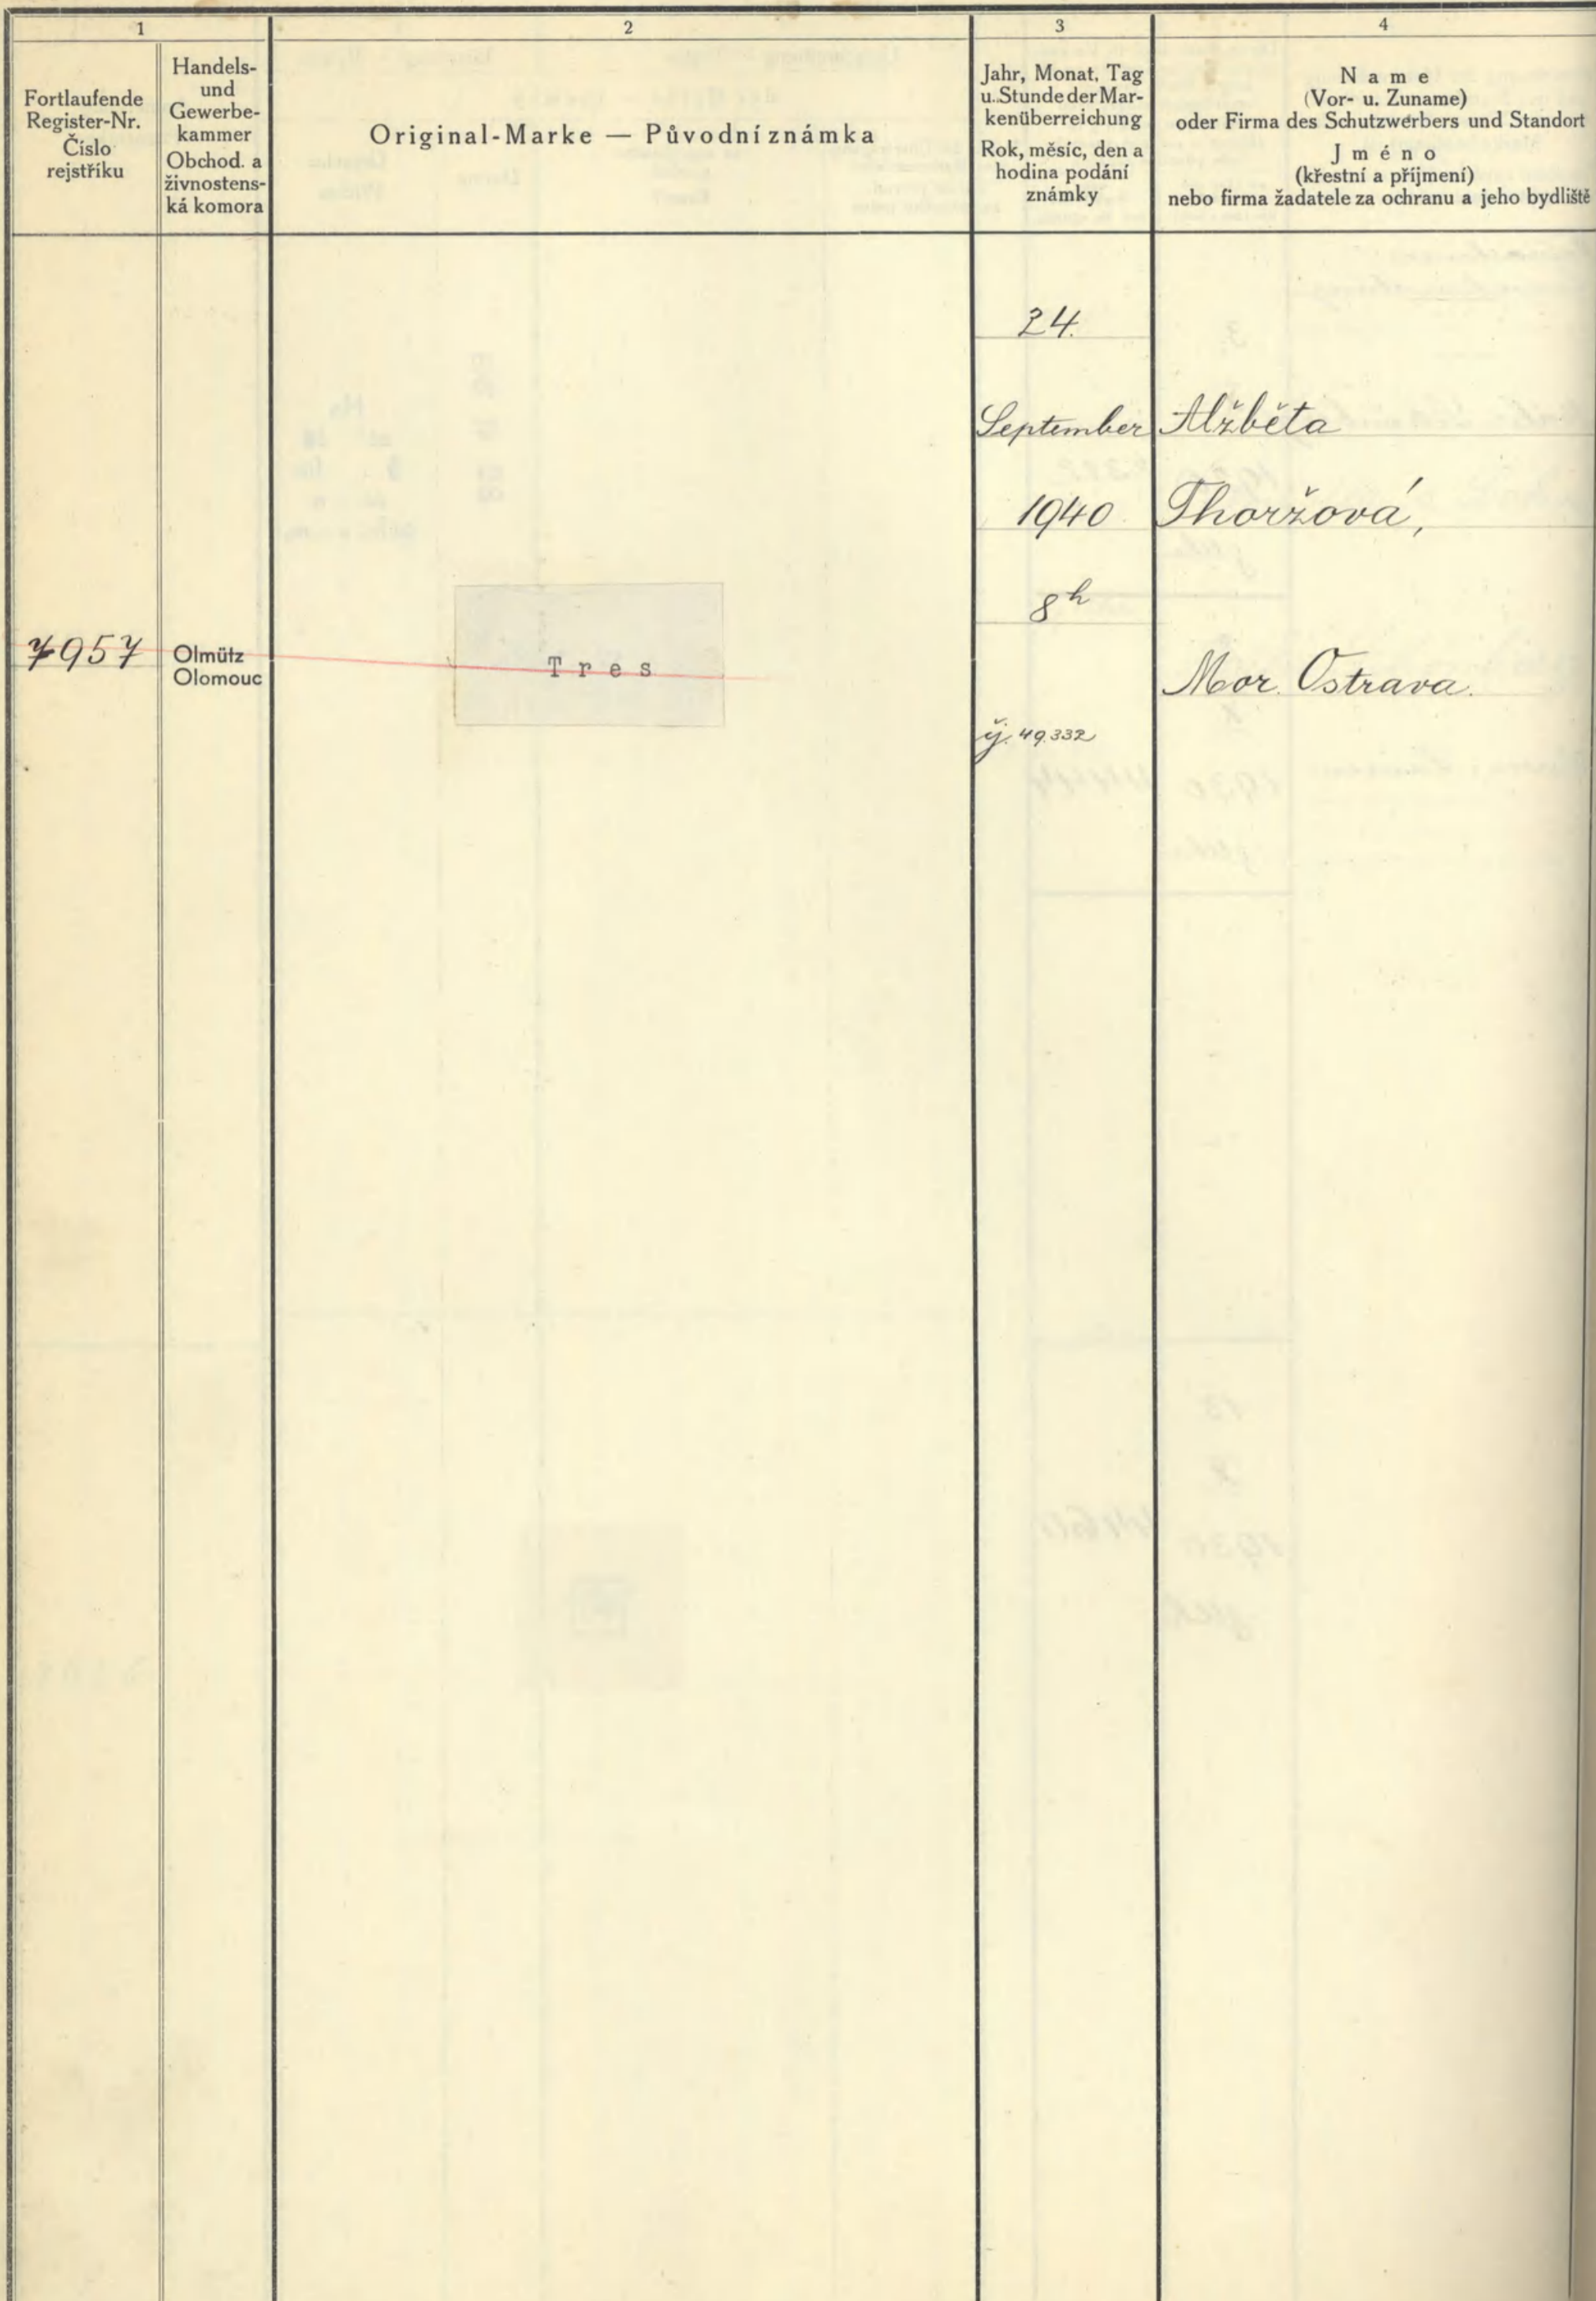 1
2
3
4
Fortlaufende
Register-Nr.
Číslo
rejstříku
Handels-
und
Gewerbe-
kammer
Obchod. a
živnostens-
ká komora
Original-Marke — Původní známka
Jahr, Monat, Tag
u. Stunde der Mar-
kenüberreichung
Rok, měsíc, den a
hodina podání
známky
Name
(Vor- u. Zuname)
oder Firma des Schutzwerbers und Standort
Jméno
(křestní a příjmení)
nebo firma žadatele za ochranu a jeho bydliště
24.
September
1940
8h
čj. 49.332
Alžběta
Thoržová,
Mor. Ostrava.
7957
Olmütz
Olomouc
Tres